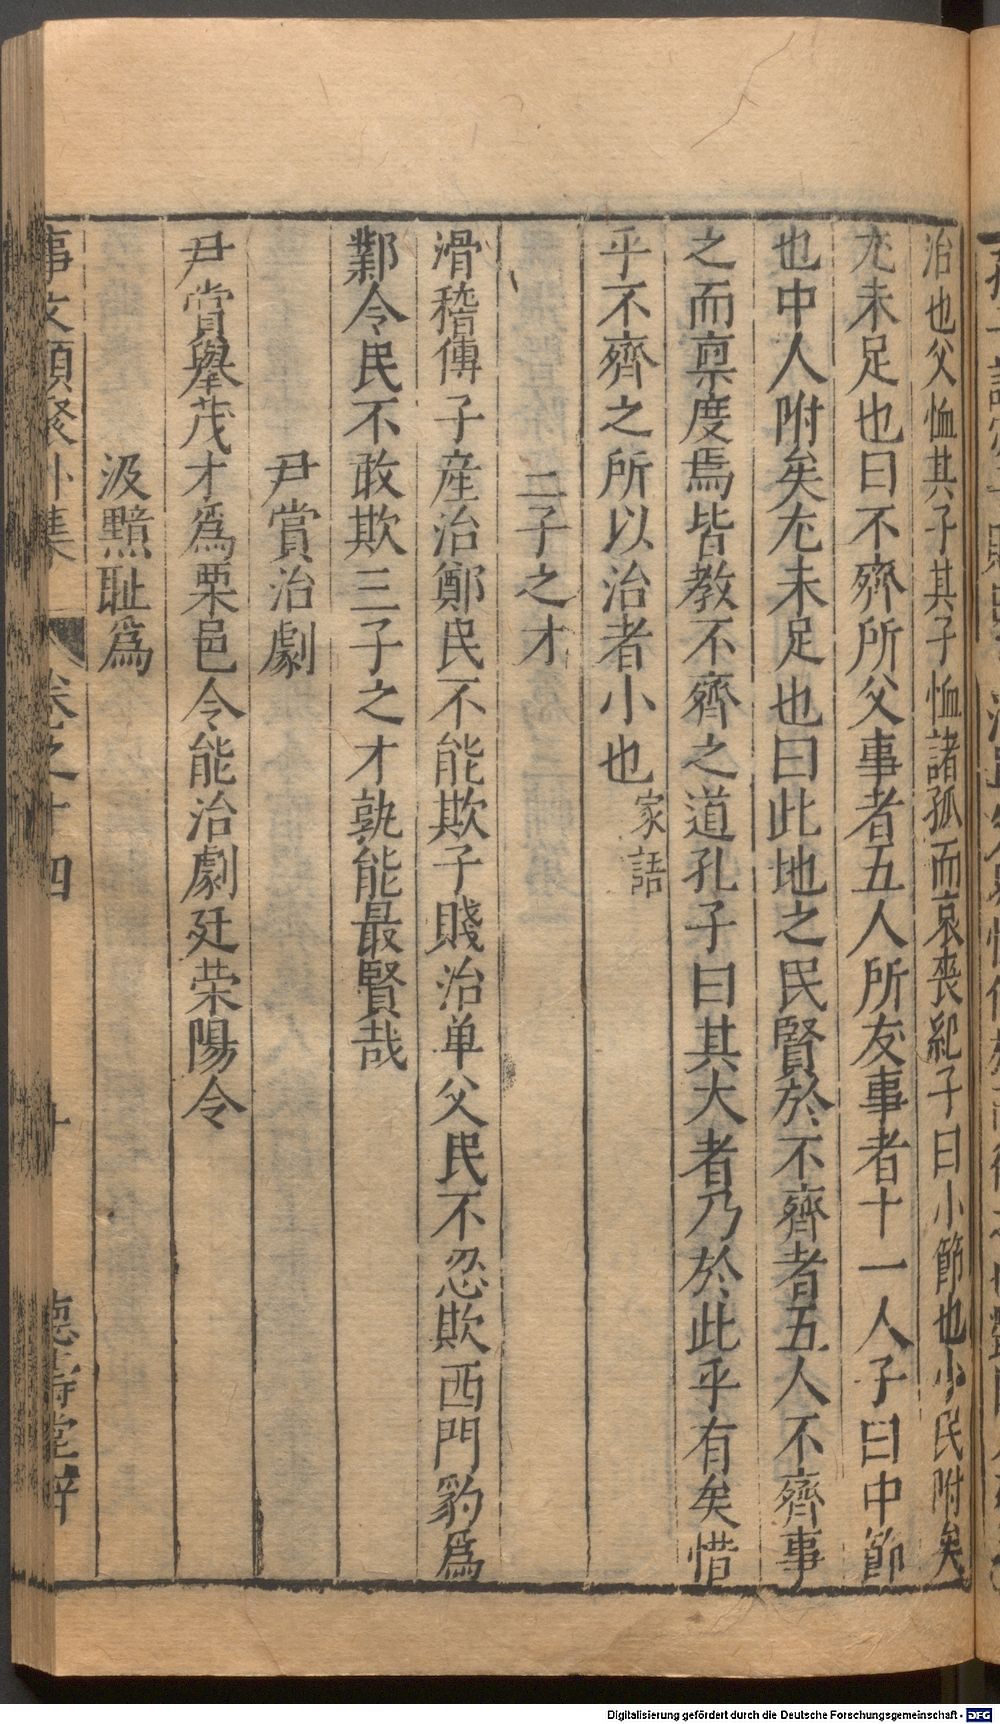 治也父恤其子其子恤諸孤而哀喪紀子曰小節也小民附矣
尢未足也曰不齊所父事者五人所友事者十一人子曰中節
也中人附矣尢未足也曰此地之民賢於不齊者五人不齊事
之而禀度焉皆教不齊之道孔子曰其大者乃於此乎有矣惜
乎不齊之所以治者小也家語
三子之才
滑稽傳子產治鄭民不能欺子賤治单父民不忍欺西門豹爲
鄴令民不敢欺三子之才孰能最賢哉
尹賞治劇
尹賞舉茂才爲栗邑令能治劇廷荣陽令
汲黯耻爲
事文類聚外集 卷之十四 十 德壽堂梓
Digitalisierung gefördert durch die Deutsche Forschungsgemeinschaft - DFG